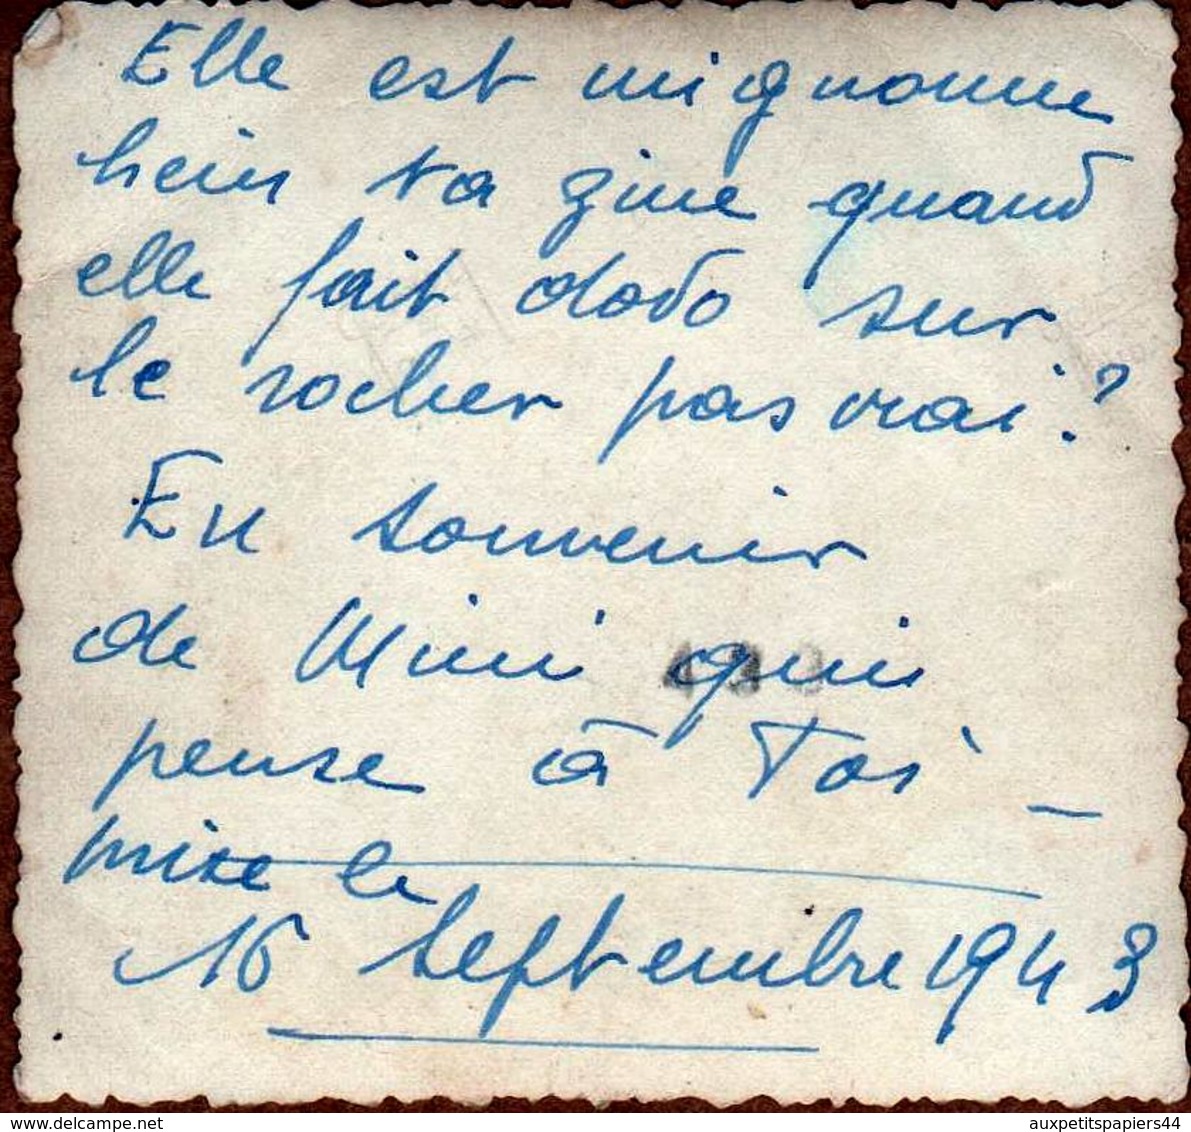 Elle est mignonne
hein ta zine quand
elle fait dodo sur
le rocher pas vrai?
En souvenir
de Mimi qui
pense à Toi _
prise le
16 septembre 1943
auxpetitspapiers44